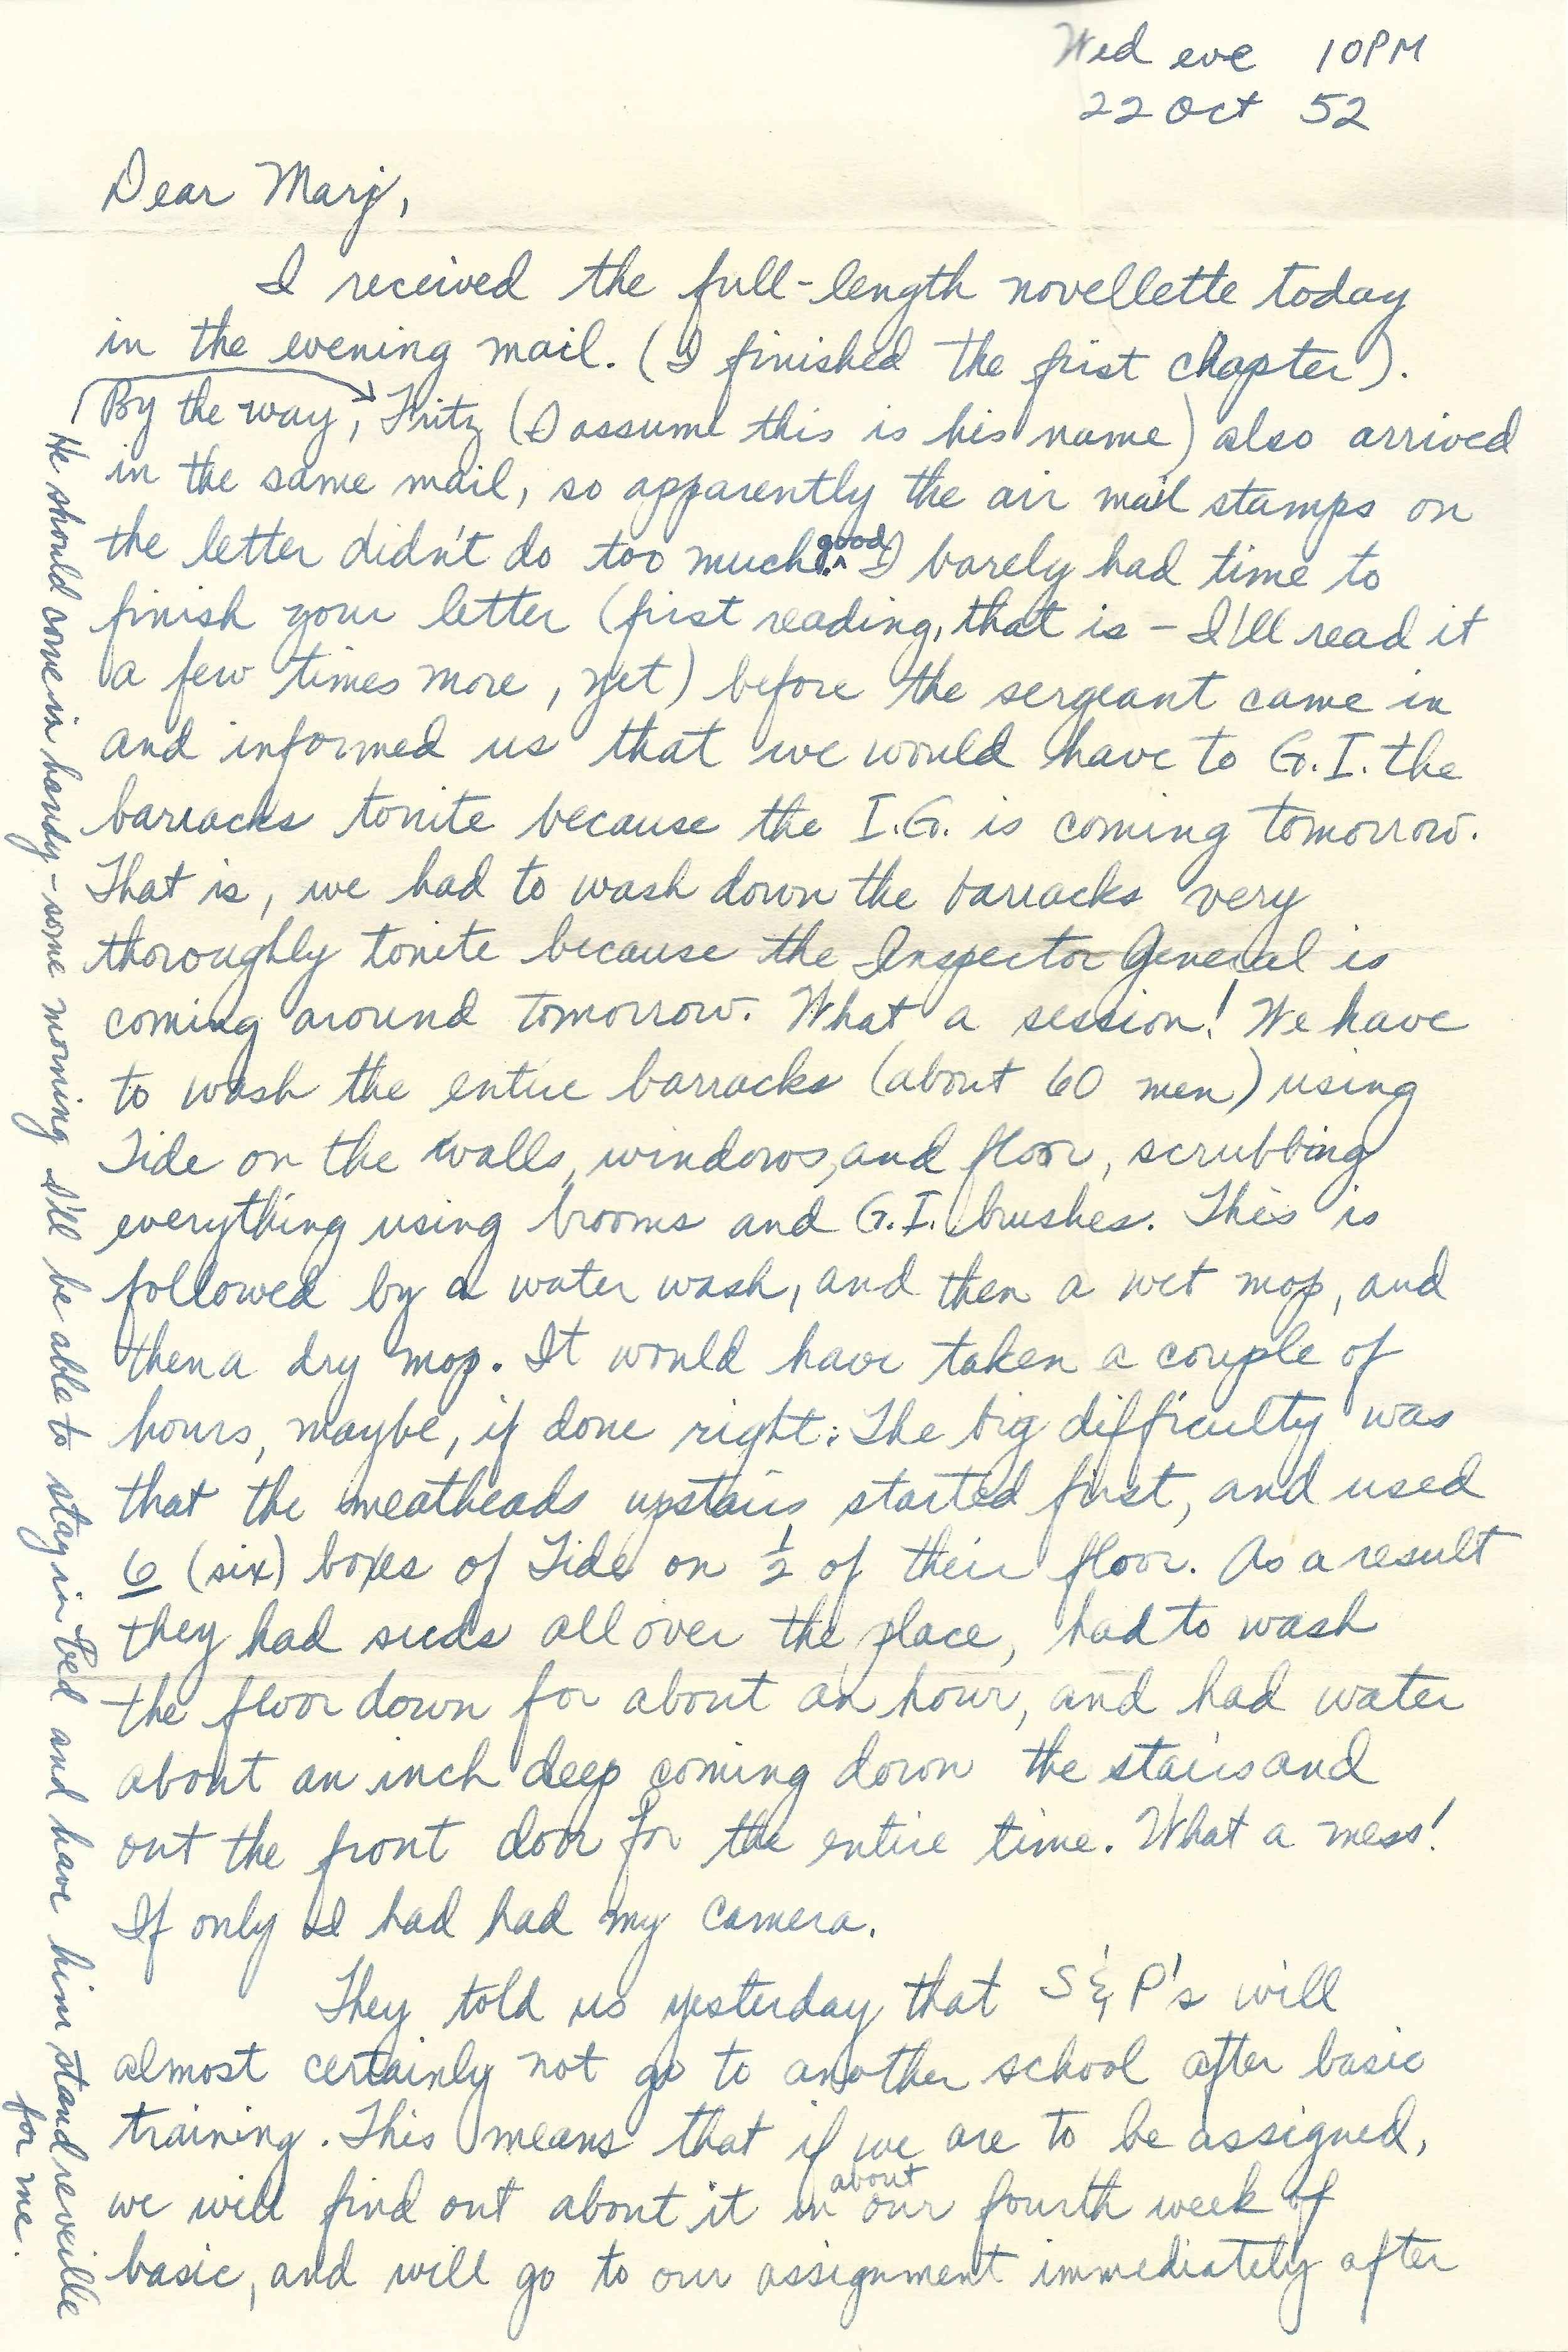 Wed eve 10PM
22 Oct 52
Dear Marj,
I received the full-length novellette today
in the evening mail. (I finished the first chapter).
By the way, Fritz (I assume this is his name) also arrived
in the same mail, so apparently the air mail stamps on
the letter didn't do too much good. I barely had time to
finish your letter (first reading, that is - I'll read it
a few times more, yet) before the sergeant came in
and informed us that we would have to G.I. the
barracks tonite because the I.G. is coming tomorrow.
That is, we had to wash down the barracks very
thoroughly tonite because the Inspector General is
coming around tomorrow. What a session! We have
to wash the entire barracks (about 60 men) using
Tide on the walls, windows, and floor, scrubbing
everything using brooms and G.I. brushes. This is
followed by a water wash, and then a wet mop, and
then a dry mop. It would have taken a couple of
hours, maybe, if done right. The big difficulty was
that the meatheads upstairs started first, and used
6 (six) boxes of Tide on ½ of their floor. As a result
they had suds all over the place, had to wash
the floor down for about an hour, and had water
about an inch deep coming down the stairs and
out the front door for the entire time. What a mess!
If only I had had my camera.
They told us yesterday that S & P's will
almost certainly not go to another school after basic
training. This means that if we are to be assigned,
we will find out about it in about our fourth week of
basic, and will go to our assignment immediately after
He should come in handy - some morning I'll be able to stay in bed and have him stand reveille
for me.